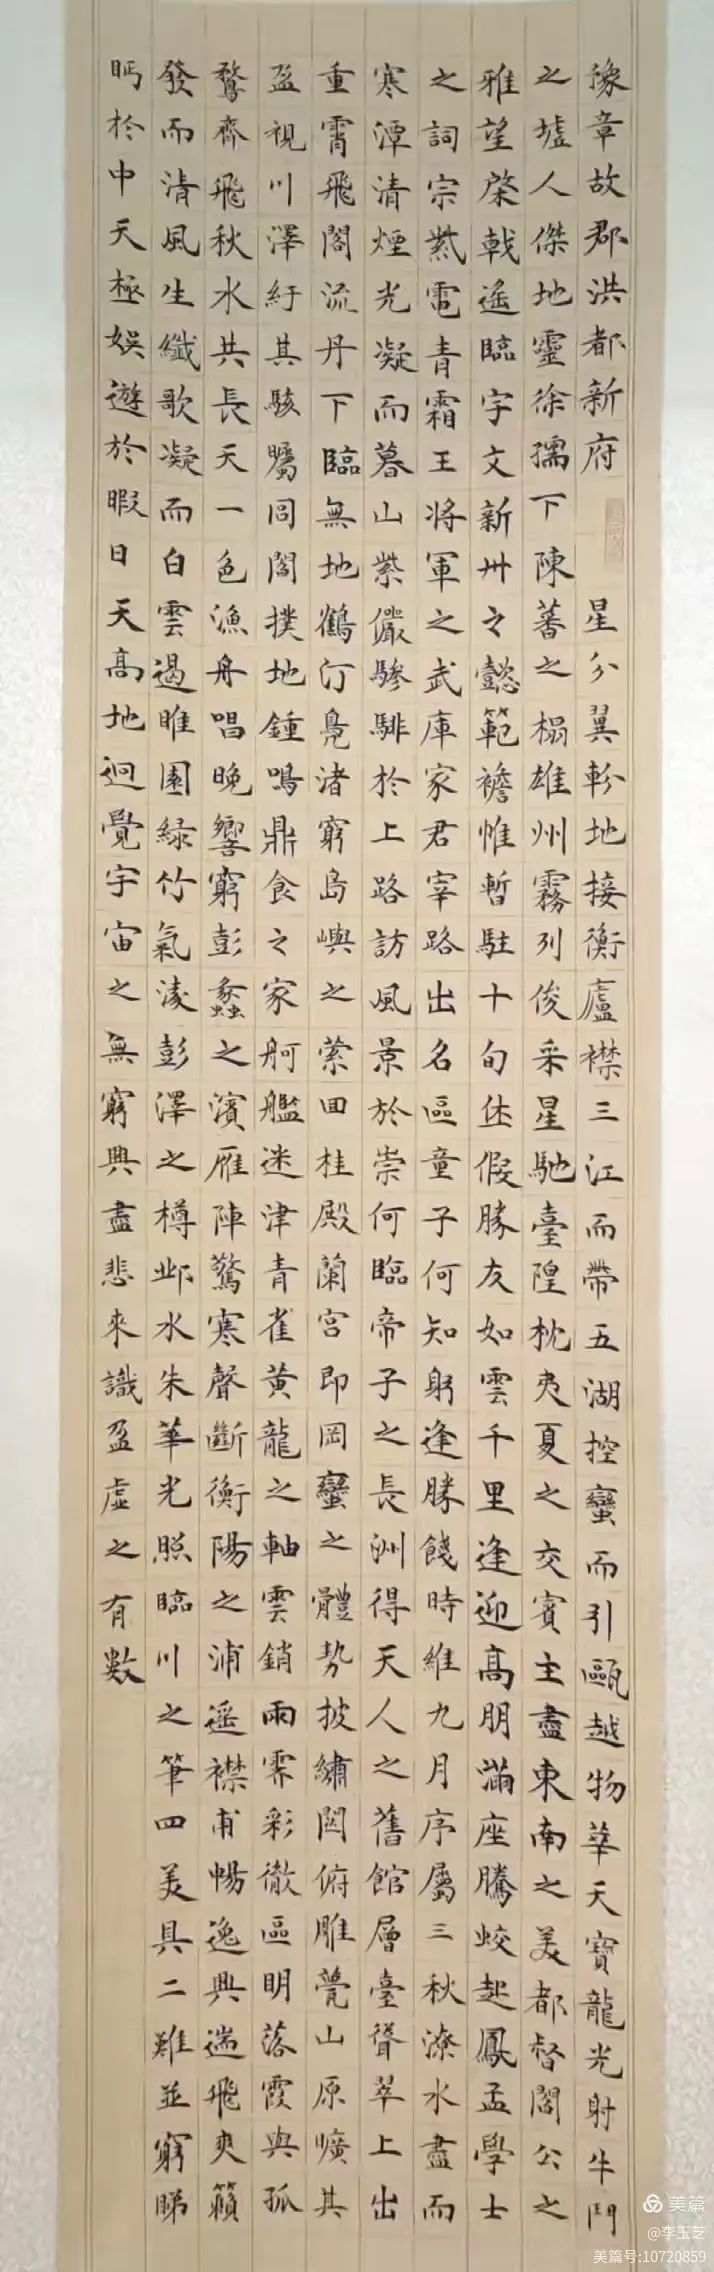 豫章故郡洪都新府 星分翼軫地接衡廬襟三江而帶五湖控蠻而引甌越物華天寶龍光射牛鬥
之墟人傑地靈徐孺下陳蕃之榻雄州霧列俊采星馳臺隍枕夷夏之交賓主盡東南之美都督閻公之
雅望棨戟遙臨宇文新州之懿範襜帷暫駐十旬休假勝友如雲千里逢迎高朋滿座騰蛟起鳳孟學士
之詞宗紫電青霜王將軍之武庫家君宰路出名區童子何知躬逢勝餞時維九月序屬三秋潦水盡而
寒潭清煙光凝而暮山紫儼驂騑於上路訪風景於崇何臨帝子之長洲得天人之舊館層臺聳翠上出
重霄飛閣流丹下臨無地鶴汀鳧渚窮島嶼之縈回桂殿蘭宮即岡蠻之體勢披繡闥俯雕甍山原曠其
盈視川澤紆其駭矚閭閻撲地鍾鳴鼎食之家舸艦迷津青雀黃龍之軸雲銷雨霽彩徹區明落霞與孤
鶩齊飛秋水共長天一色漁舟唱晚響窮彭蠡之濱雁陣驚寒聲斷衡陽之浦遙襟甫暢逸興遄飛爽籟
發而清風生纖歌凝而白雲遏睢園綠竹氣淩彭澤之樽鄴水朱華光照臨川之筆四美具二難並窮睇
眄於中天極娛遊於暇日天高地迥覺宇宙之無窮興盡悲來識盈虛之有數
美篇
@李玉芝
美篇号:10720859